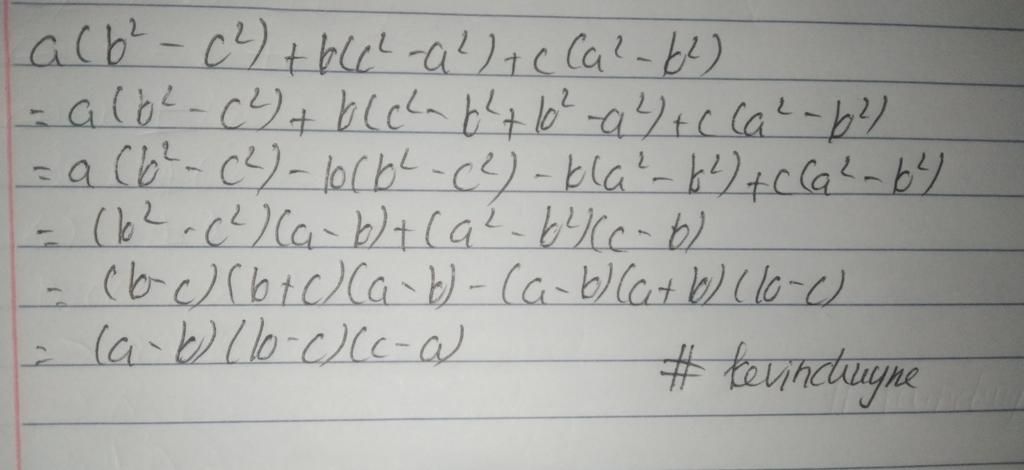 a(b² - c²) + b(c² - a²) + c(a² - b²)
= a(b² - c²) + b(c² - b² + b² - a²) + c(a² - b²)
= a(b² - c²) - b(b² - c²) - b(a² - b²) + c(a² - b²)
= (b² - c²)(a - b) + (a² - b²)(c - b)
= (b - c)(b + c)(a - b) - (a - b)(a + b)(b - c)
= (a - b)(b - c)(c - a)
# kevinchuyne